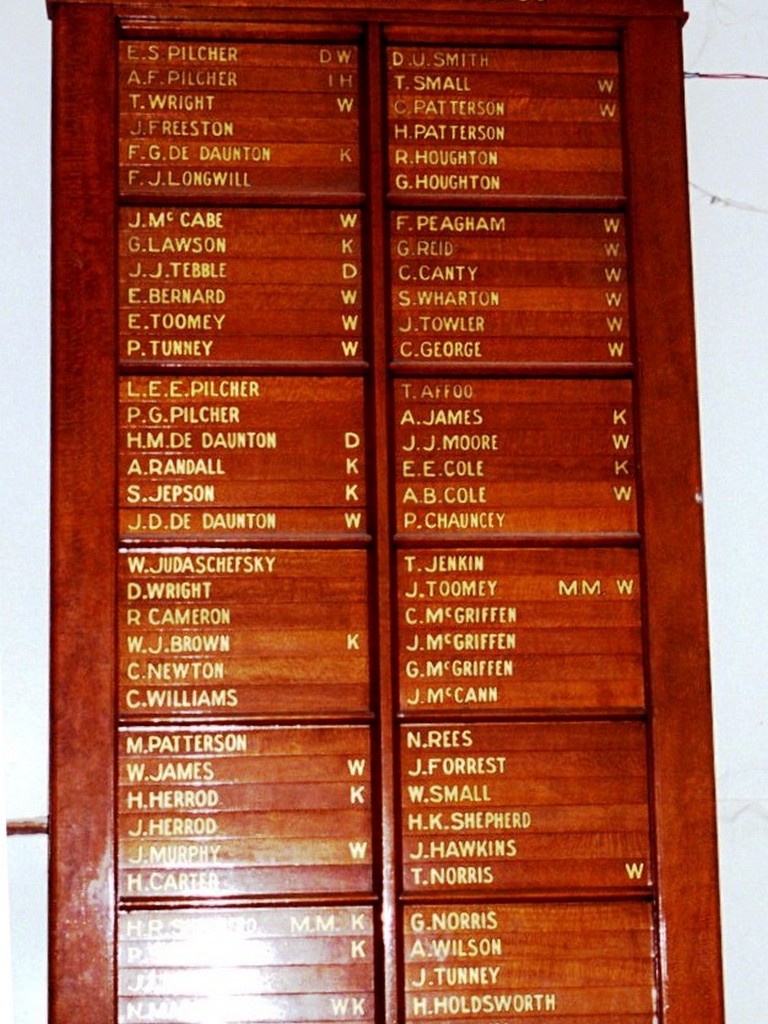 E.S PILCHER D W
A.F. PILCHER I H
T. WRIGHT W
J. FREESTON
F.G. DE DAUNTON K
F.J. LONGWILL
J. Mc CABE W
G. LAWSON K
J.J. TEBBLE D
E. BERNARD W
E. TOOMEY W
P. TUNNEY W
L.E.E. PILCHER
P.G. PILCHER
H.M. DE DAUNTON D
A. RANDALL K
S. JEPSON K
J.D. DE DAUNTON W
W. JUDASCHEFSKY
D. WRIGHT
R CAMERON
W.J. BROWN K
C. NEWTON
C. WILLIAMS
M. PATTERSON
W. JAMES W
H. HERROD K
J. HERROD
J. MURPHY W
H. CARTER
H.R. M.M. K
K
W K
D.U. SMITH
T. SMALL W
C. PATTERSON W
H. PATTERSON
R. HOUGHTON
G. HOUGHTON
F. PEAGHAM W
G. REID W
C. CANTY W
S. WHARTON W
J. TOWLER W
C. GEORGE W
T. AFFOO
A. JAMES K
J.J. MOORE W
E.E. COLE K
A.B. COLE W
P. CHAUNCEY
T. JENKIN
J. TOOMEY M.M. W
C. McGRIFFEN
J. McGRIFFEN
G. McGRIFFEN
J. McCANN
N. REES
J. FORREST
W. SMALL
H.K. SHEPHERD
J. HAWKINS
T. NORRIS W
G. NORRIS
A. WILSON
J. TUNNEY
H. HOLDSWORTH